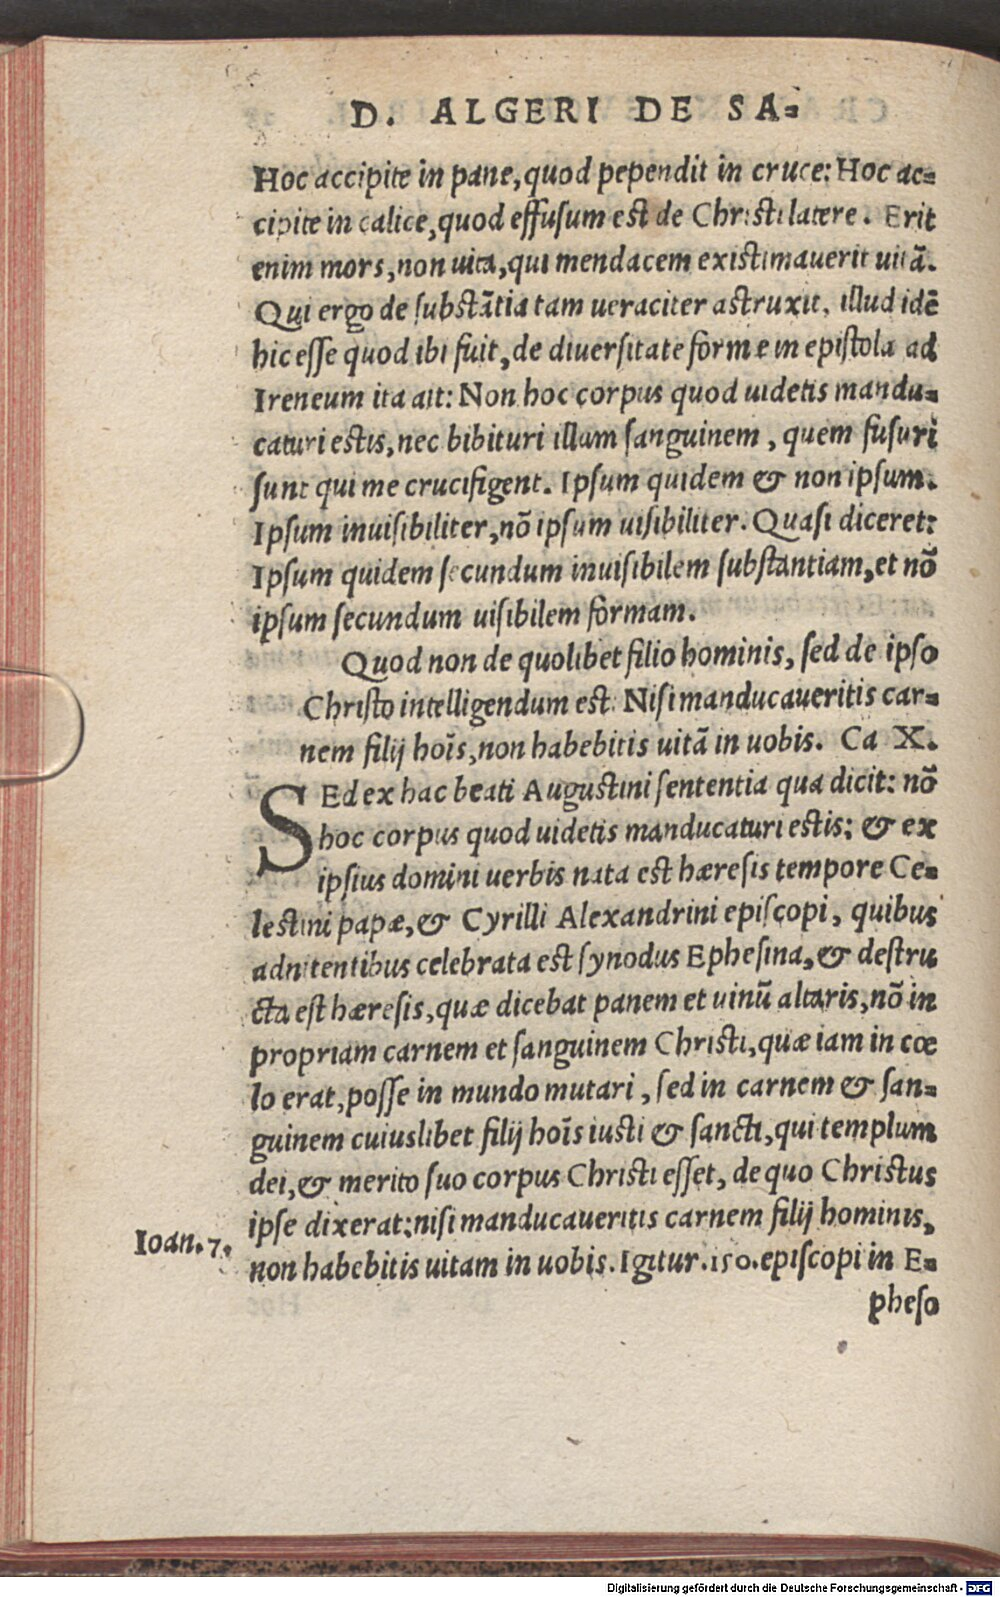 D. ALGERI DE SA-
Hoc accipite in pane, quod pependit in cruce: Hoc ac-
cipite in calice, quod effusum est de Christi latere. Erit
enim mors, non uita, qui mendacem existimauerit uitã.
Qui ergo de substãtia tam ueraciter astruxit, illud idẽ
hic esse quod ibi fuit, de diuersitate formæ in epistola ad
Ireneum ita ait: Non hoc corpus quod uidetis mandu-
caturi estis, nec bibituri illum sanguinem, quem fusuri
sunt qui me crucifigent. Ipsum quidem & non ipsum.
Ipsum inuisibiliter, nõ ipsum uisibiliter. Quasi diceret:
Ipsum quidem secundum inuisibilem substantiam, et nõ
ipsum secundum uisibilem formam.
Quod non de quolibet filio hominis, sed de ipso
Christo intelligendum est. Nisi manducaueritis car-
nem filij hoĩs, non habebitis uitã in uobis. Ca X.
SEd ex hac beati Augustini sententia qua dicit: nõ
hoc corpus quod uidetis manducaturi estis: & ex
ipsius domini uerbis nata est hæresis tempore Ce-
lestini papæ, & Cyrilli Alexandrini episcopi, quibus
adnitentibus celebrata est synodus Ephesina, & destru
cta est hæresis, quæ dicebat panem et uinũ altaris, nõ in
propriam carnem et sanguinem Christi, quæ iam in cœ
lo erat, posse in mundo mutari, sed in carnem & san-
guinem cuiuslibet filij hoĩs iusti & sancti, qui templum
dei, & merito suo corpus Christi esset, de quo Christus
ipse dixerat: nisi manducaueritis carnem filij hominis,
Ioan. 7.
non habebitis uitam in uobis. Igitur .150. episcopi in E-
pheso
Digitalisierung gefördert durch die Deutsche Forschungsgemeinschaft - DFG